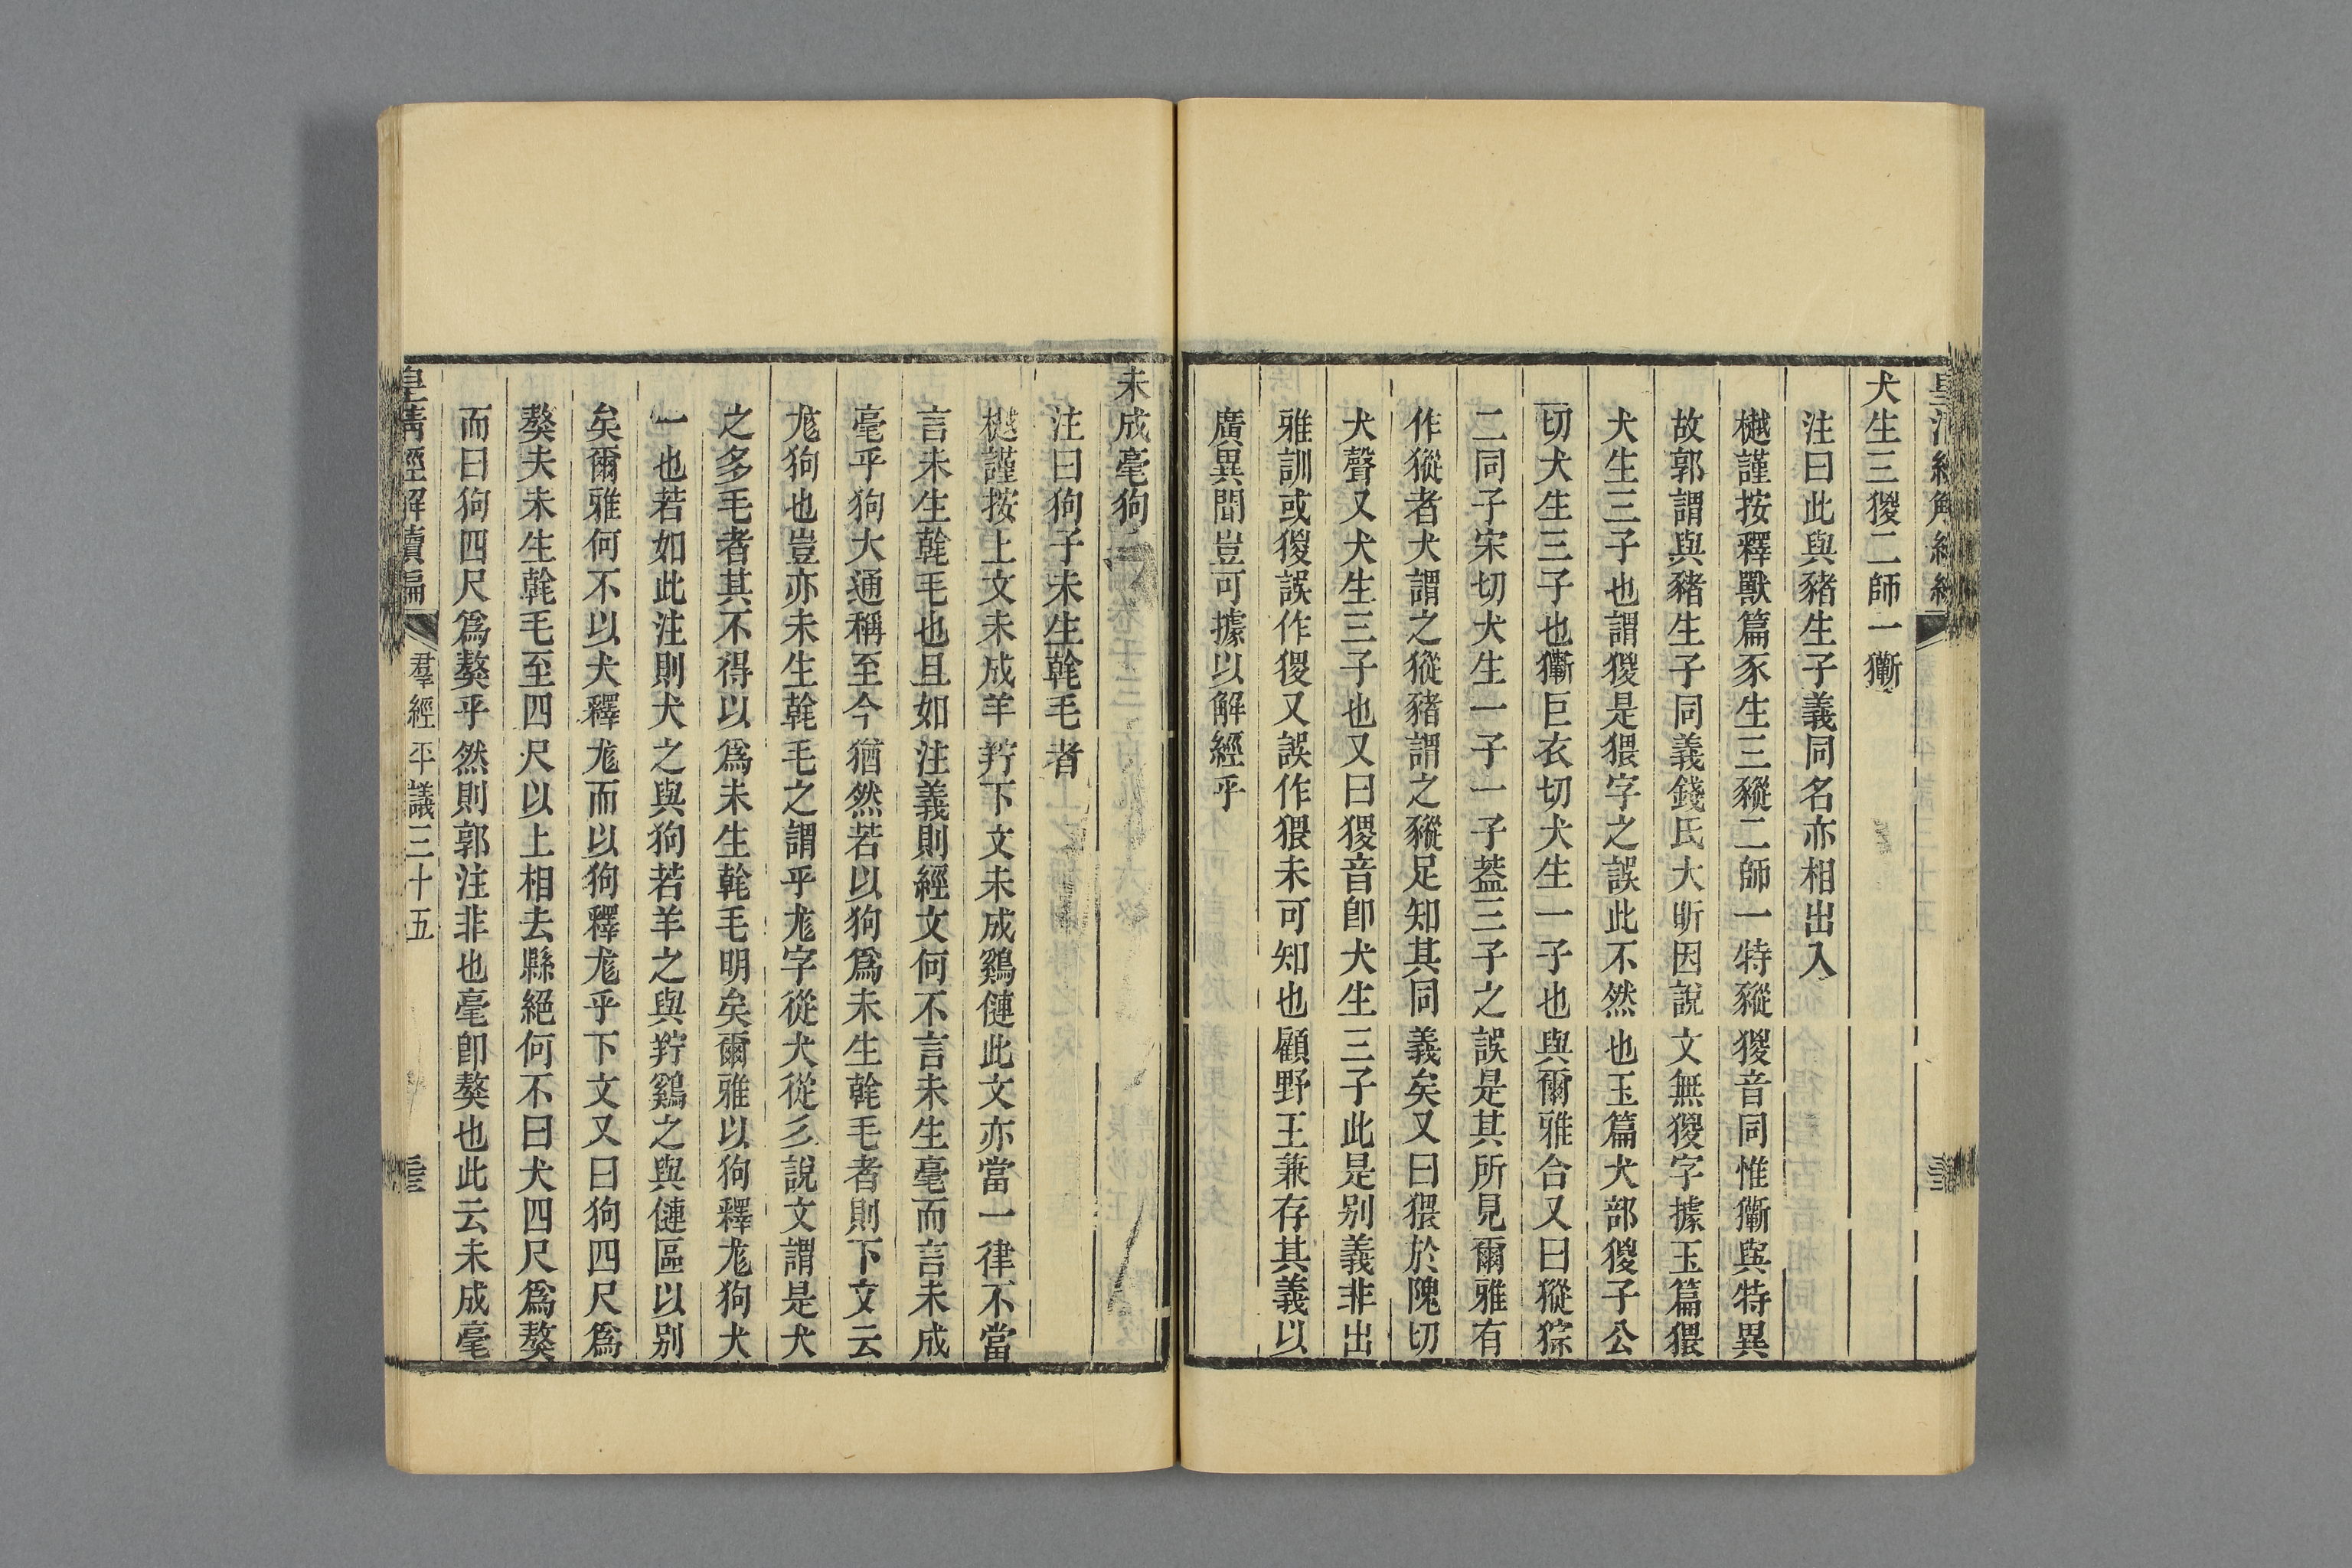 犬生三猣二師一獑
注曰此與豬生子義同名亦相出入
樾謹按釋獸篇豕生三豵二師一特豵猣音同惟獑與特異
故郭謂與豬生子同義錢氏大昕因說文無猣字據玉篇猥
犬生三子也謂猣是猥字之誤此不然也玉篇犬部猣子公
切犬生三子也獑巨衣切犬生一子也與爾雅合又曰猣猔
二同子宋切犬生一子一子葢三子之誤是其所見爾雅有
作猣者犬謂之猣豬謂之豵足知其同義矣又曰猥於隗切
犬聲又犬生三子也又曰猣音卽犬生三子此是别義非出
雅訓或猣誤作猣又誤作猥未可知也顧野王兼存其義以
廣異聞豈可據以解經乎
未成毫狗
注曰狗子未生䩚毛者
樾謹按上文未成羊羜下文未成鷄僆此文亦當一律不當
言未生䩚毛也且如注義則經文何不言未生毫而言未成
毫乎狗犬通稱至今猶然若以狗爲未生䩚毛者則下文云
尨狗也豈亦未生䩚毛之謂乎尨字從犬從彡說文謂是犬
之多毛者其不得以爲未生䩚毛明矣爾雅以狗釋尨狗犬
一也若如此注則犬之與狗若羊之與羜鷄之與僆區以别
矣爾雅何不以犬釋尨而以狗釋尨乎下文又曰狗四尺爲
獒夫未生䩚毛至四尺以上相去縣絕何不曰犬四尺爲獒
而曰狗四尺爲獒乎然則郭注非也毫卽獒也此云未成毫
皇清經解續編 羣經平議三十五